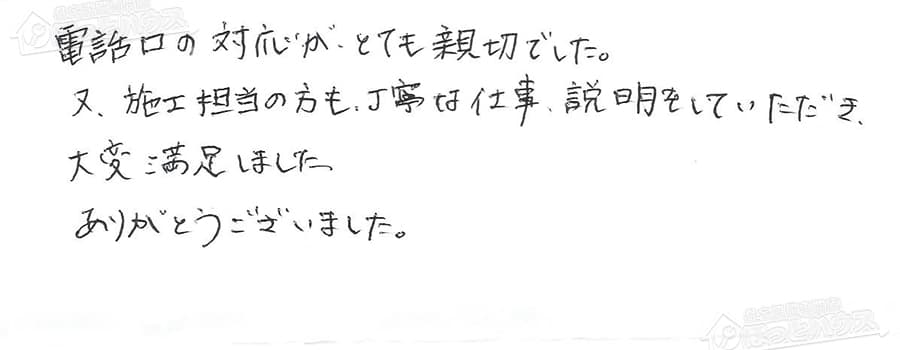 電話口の対応が、とても親切でした。
又、施工担当の方も、丁寧な仕事、説明をしていただき、
大変満足しました
ありがとうございました。